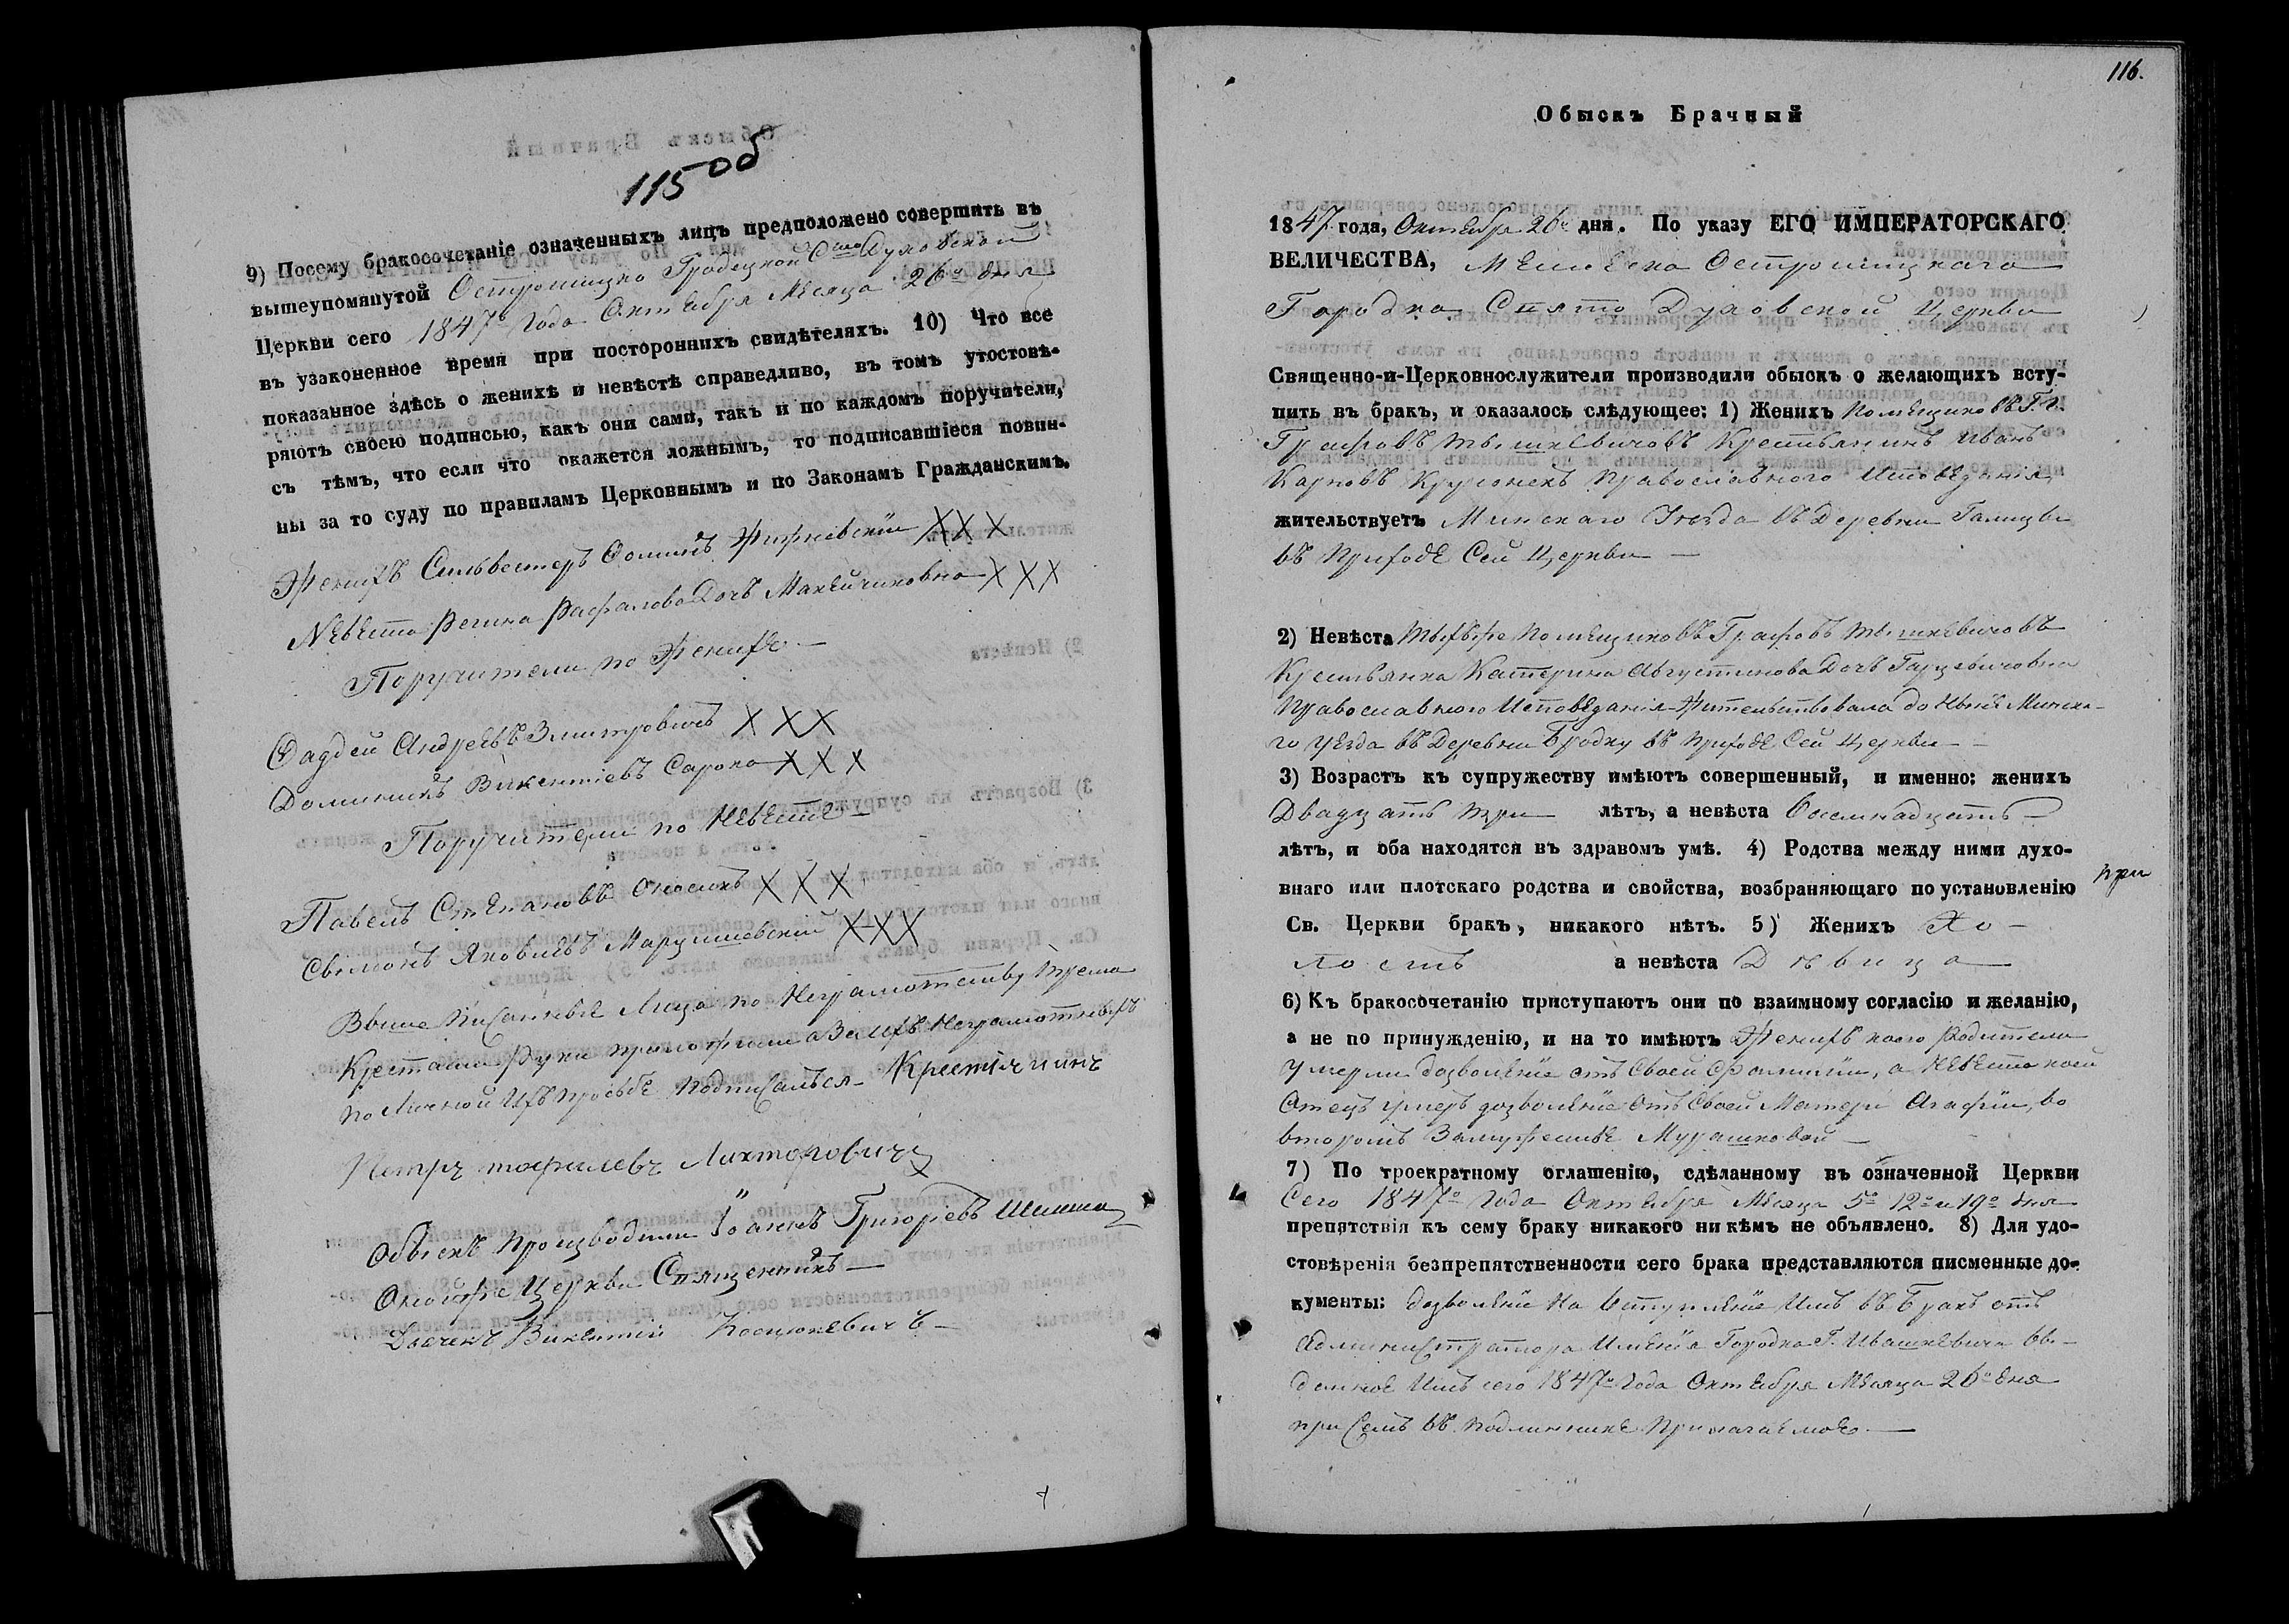 115 об
9) Посему бракосочетаніе означенныхъ лицъ предположено совершить въ
вышеупомянутой Острошицко Градецкой Свято Духовской
Церкви сего 1847го Года Октября Месяца 26го дня
въ узаконенное время при постороннихъ свидѣтеляхъ. 10) Что все
показанное здѣсь о женихѣ и невѣстѣ справедливо, въ томъ утостовѣ-
ряютъ своею подписью, какъ они сами, такъ и по каждомъ поручители,
съ тѣмъ, что если что окажется ложнымъ, то подписавшіеся повин-
ны за то суду по правиламъ Церковнымъ и по Законамъ Гражданскимъ.
Женихъ Сильвестеръ Фоминъ XXX
Невѣста Регина Рафалова Дочь XXX
Поручители по Женихѣ
Фаддей Андреевъ Змитровичъ XXX
Доминикъ Викентіевъ Сорока XXX
Поручители по Невѣстѣ
Павелъ Степановъ XXX
Яковлевъ XXX
Выше писанные Лица по Неграмотству Трема
Крестами Руки приложили а За ихъ Неграмотныхъ
по Личной Ихъ просьбѣ подписалъся Крестіянинъ
Петръ
Обыскъ производили Іоаннъ Григоріевъ
Оной же Церкви Священникъ
Дьячекъ Викентій
116.
Обыскъ Брачный
1847 года, Октября 26го дня. По указу ЕГО ИМПЕРАТОРСКАГО
ВЕЛИЧЕСТВА, Минскаго Острошицкаго
Городка Свято Духовской Церкви
Священно-и-Церковнослужители производили обыскъ о желающихъ всту-
пить въ бракъ, и оказалось слѣдующее: 1) Женихъ Помещиковъ Г.г.
Графовъ Тышкевичовъ Крестьянинъ Иванъ
Карповъ Православного Исповеданія
жительствуетъ Минскаго Уезда въ Деревни
въ Приходе Сей Церкви
2) Невѣста Тыхъже Помещиковъ Графовъ Тышкевичовъ
Крестьянка Катерина Августинова Дочь
Православного Исповеданія Жительствовала до Ныне Минска-
го Уезда въ Деревни въ Приходе Сей Церкви
3) Возрастъ къ супружеству имѣютъ совершенный, и именно: женихъ
Двадцать три лѣтъ, а невѣста Осемнадцать
лѣтъ, и оба находятся въ здравомъ умѣ. 4) Родства между ними духо-
внаго или плотскаго родства и свойства, возбраняющаго по установленію
при
Св. Церкви бракъ, никакого нѣтъ. 5) Женихъ Хо-
лостъ а невѣста Дѣвица
6) Къ бракосочетанію приступаютъ они по взаимному согласію и желанію,
а не по принужденію, и на то имѣютъ Женихъ коего Родители
умерли дозволеніе отъ Своей Фамиліи, а Невеста коей
Отецъ умеръ дозволеніе Отъ Своей Матери Агафіи, во
второмъ Замужестве Мурашковой
7) По троекратному оглашенію, сдѣланному въ означенной Церкви
Сего 1847го Года Октября Месяца 5го 12го и 19го дня
препятствія къ сему браку никакого ни кѣмъ не объявлено. 8) Для удо-
стовѣренія безпрепятственности сего брака представляются писменные до-
кументы: дозволеніе На Вступленіе Имъ въ Бракъ отъ
Администратора Именія Городка Г. Ивашкевича вы-
данное Имъ сего 1847го Года Октября Месяца 26го дня
при Семъ въ Подлиннике Прилагаемое.